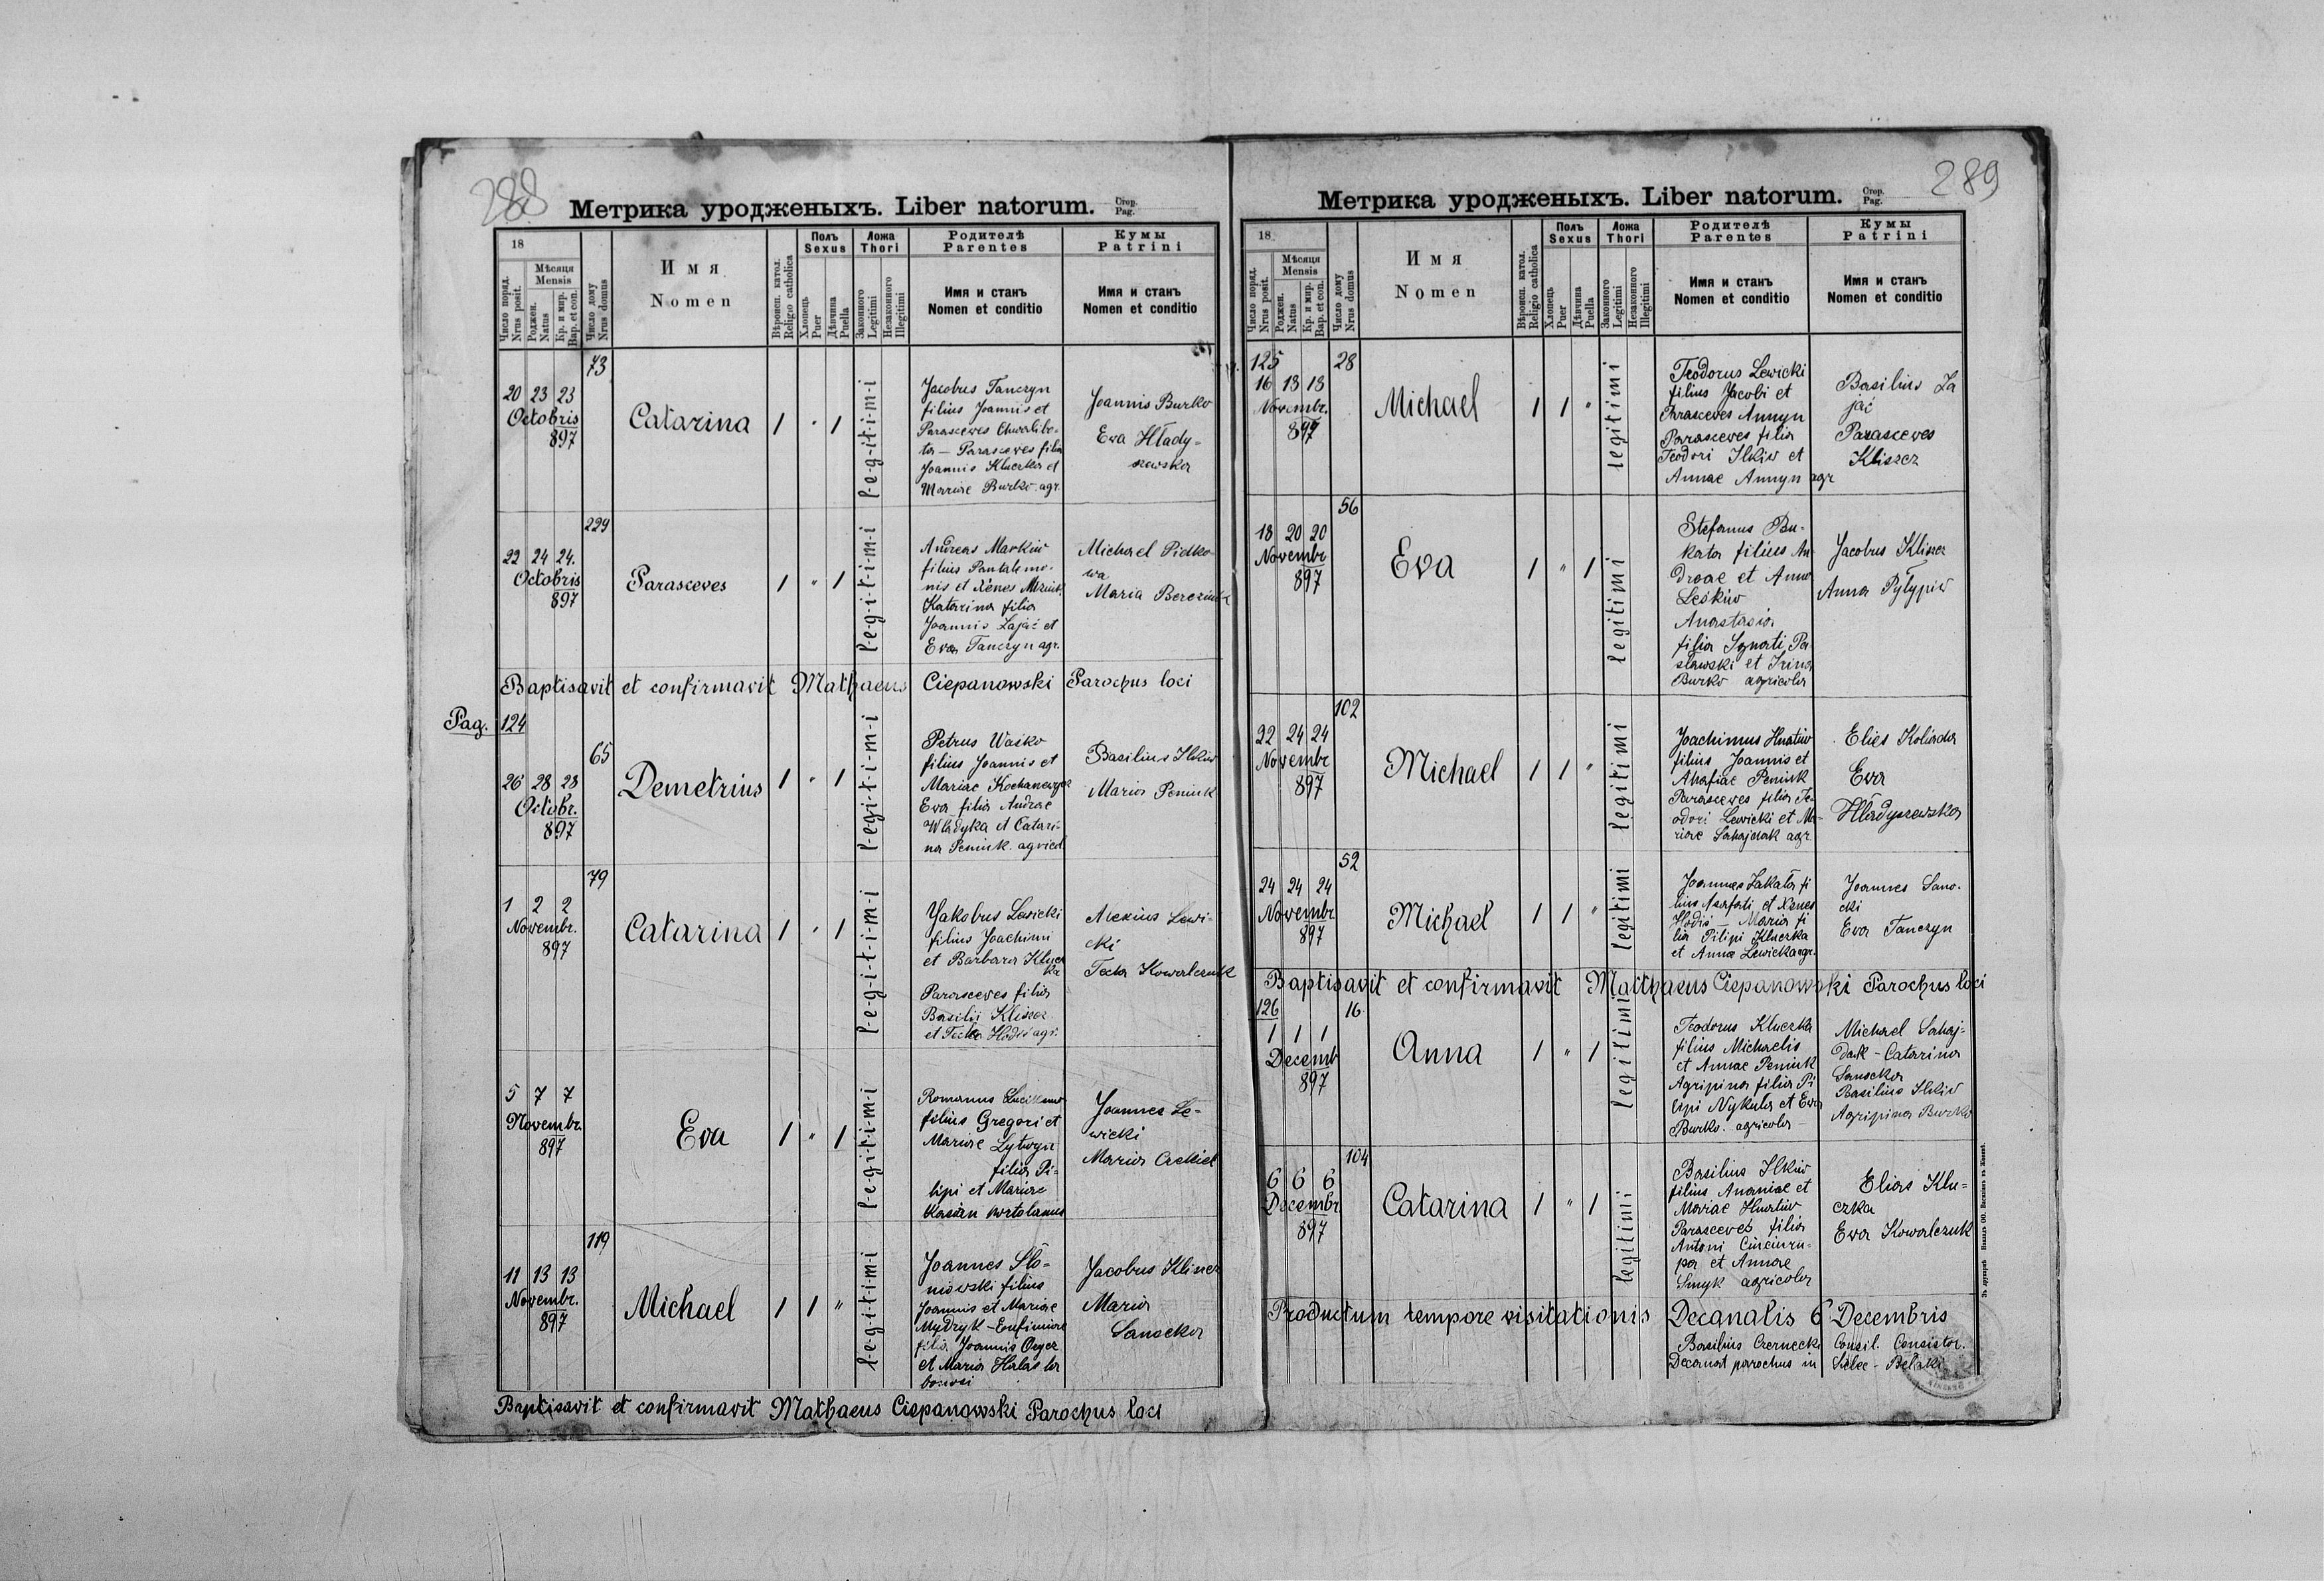 288
Метрика уродженыхъ. Liber natorum.
Стор.
Pag.
18
Число поряд.
Nrus posit.
Мѣсяця
Mensis
Роджен.
Natus
Кр. и мир.
Bap. et con.
Число дому
Nrus domus
Имя
Nomen
Вѣроисп. катол.
Religio catholica
Полъ
Sexus
Хлопець
Puer
Дѣвчина
Puella
Ложа
Thori
Законного
Legitimi
Незаконного
Illegitimi
Родителѣ
Parentes
Имя и станъ
Nomen et conditio
Кумы
Patrini
Имя и станъ
Nomen et conditio
73
20 23 23
Octobris
897
Catarina
1 " 1
l-e-g-i-t-i-m-i
Jacobus Tanczyn
filius Joannis et
Parascewes
ta — Parascewes filia
Joannis Kluczka et
Mariae Burko agr.
Joannis Burko
Ewa Hłady-
szewska
229
22 24 24.
Octobris
897
Parasceves
1 " 1
l-e-g-i-t-i-m-i
Andreas Markiw
filius Pantalemo-
nis et Xenes
Katarina filia
Joannis Zajać et
Eva Tanczyn agr.
Michael Pidko-
wa
Maria Bereziuk
Baptisavit et confirmavit Mathaeus Ciepanowski Parochus loci
Pag. 124
65
26 28 28
Octobr.
897
Demetrius
1 " 1
l-e-g-i-t-i-m-i
Petrus Waśko
filius Joannis et
Mariae
Ewa filia Andreae
Władyka et Catari-
na Peniuk. agricol
Basilius Ilkiw
Maria Peniuk
79
1 2 2
Novembr.
897
Catarina
1 " 1
l-e-g-i-t-i-m-i
Yakobus Lewicki
filius Joachimi
et Barbara Klucz
ka
Parasceves filia
Basilii Kliszcz
et Tecka Hodió agr.
Alexius Lewi-
cki
Tecka Kowalczuk
5 7 7
Novembr.
897
Eva
1 " 1
l-e-g-i-t-i-m-i
Romanus
filius Gregori et
Mariae Lytwyn
filia Pi-
lipi et Mariae
Kasian
Joannes Le-
wicki
Maria
119
11 13 13
Novembr.
897
Michael
1 1 "
l-e-g-i-t-i-m-i
Joannes Sło-
niowski filius
Joannis et Mariae
Mydzyk – Eufimiae
filia Joannis
et Maria Hałas la
borosi
Jacobus Kliszcz
Maria
Sanocka
Baptisavit et confirmavit Mathaeus Ciepanowski Parochus loci
289
Метрика уродженыхъ. Liber natorum.
Стор.
Pag.
18
Число поряд.
Nrus posit.
Мѣсяця
Mensis
Роджен.
Natus
Кр. и мир.
Bap. et con.
Число дому
Nrus domus
Имя
Nomen
Вѣроисп. катол.
Religio catholica
Полъ
Sexus
Хлопець
Puer
Дѣвчина
Puella
Ложа
Thori
Законного
Legitimi
Незаконного
Illegitimi
Родителѣ
Parentes
Имя и станъ
Nomen et conditio
Кумы
Patrini
Имя и станъ
Nomen et conditio
125
28
16 18 18
Novembr.
897
Michael
1 1 "
legitimi
Teodorus Lewicki
filius Jacobi et
Parasceves Annyn
Parasceves filia
Teodori Ilkiw et
Annae Annyn agr
Basilius Za
jać
Parascewes
Kliszcz
56
18 20 20
Novembr
897
Eva
1 " 1
legitimi
Stefanus Bu-
kata filius An
dreae et Anna
Leśkiw
Anastasia
filia Ignati Pa
sławski et Irina
Burko agricola
Jacobus Kliszcz
Anna Pylypiw
102
22 24 24
Novembr
897
Michael
1 1 "
legitimi
Joachimus Hnatiw
filius Joannis et
Ahafiae Peniuk
Parascewes filia Te-
odori Lewicki et Ma-
riae Sahajdak agr.
Elies Koliada
Ewa
Hładyszewska
52
24 24 24
Novembr
897
Michael
1 1 "
legitimi
Joannes Zakała fi
lius et Xenes
Hodió — Maria fi
lia Pilipi Kluczka
et Anna Lewicka agr.
Joannes Sano-
cki
Eva Tanczyn
Baptisavit et confirmavit Matthaeus Ciepanowski Parochus loci
126
16
1 1 1
Decemb
897
Anna
1 " 1
legitimi
Teodorus Kluczka
filius Michaelis
et Annae Peniuk
Agripina filia Pi
lipi Nykula et Ewa
Burko. agricola
Michael Sahaj-
dak – Catarina
Sanocka
Basilius Ilkiw
Agripina Burko
104
6 6 6
Decembr
897
Catarina
1 " 1
legitimi
Basilius Ilkiw
filius Ananiae et
Mariae Hnatiw
Parasceves filia
Antoni Ciuciuru-
pa et Annae
Smyk agricola
Elias Klu-
czka
Ewa Kowalczuk
Productum tempore visitationis Decanalis 6 Decembris
Basilius Czernecki Consil. Consistor.
Decanat parochus in Sielec - Bełski